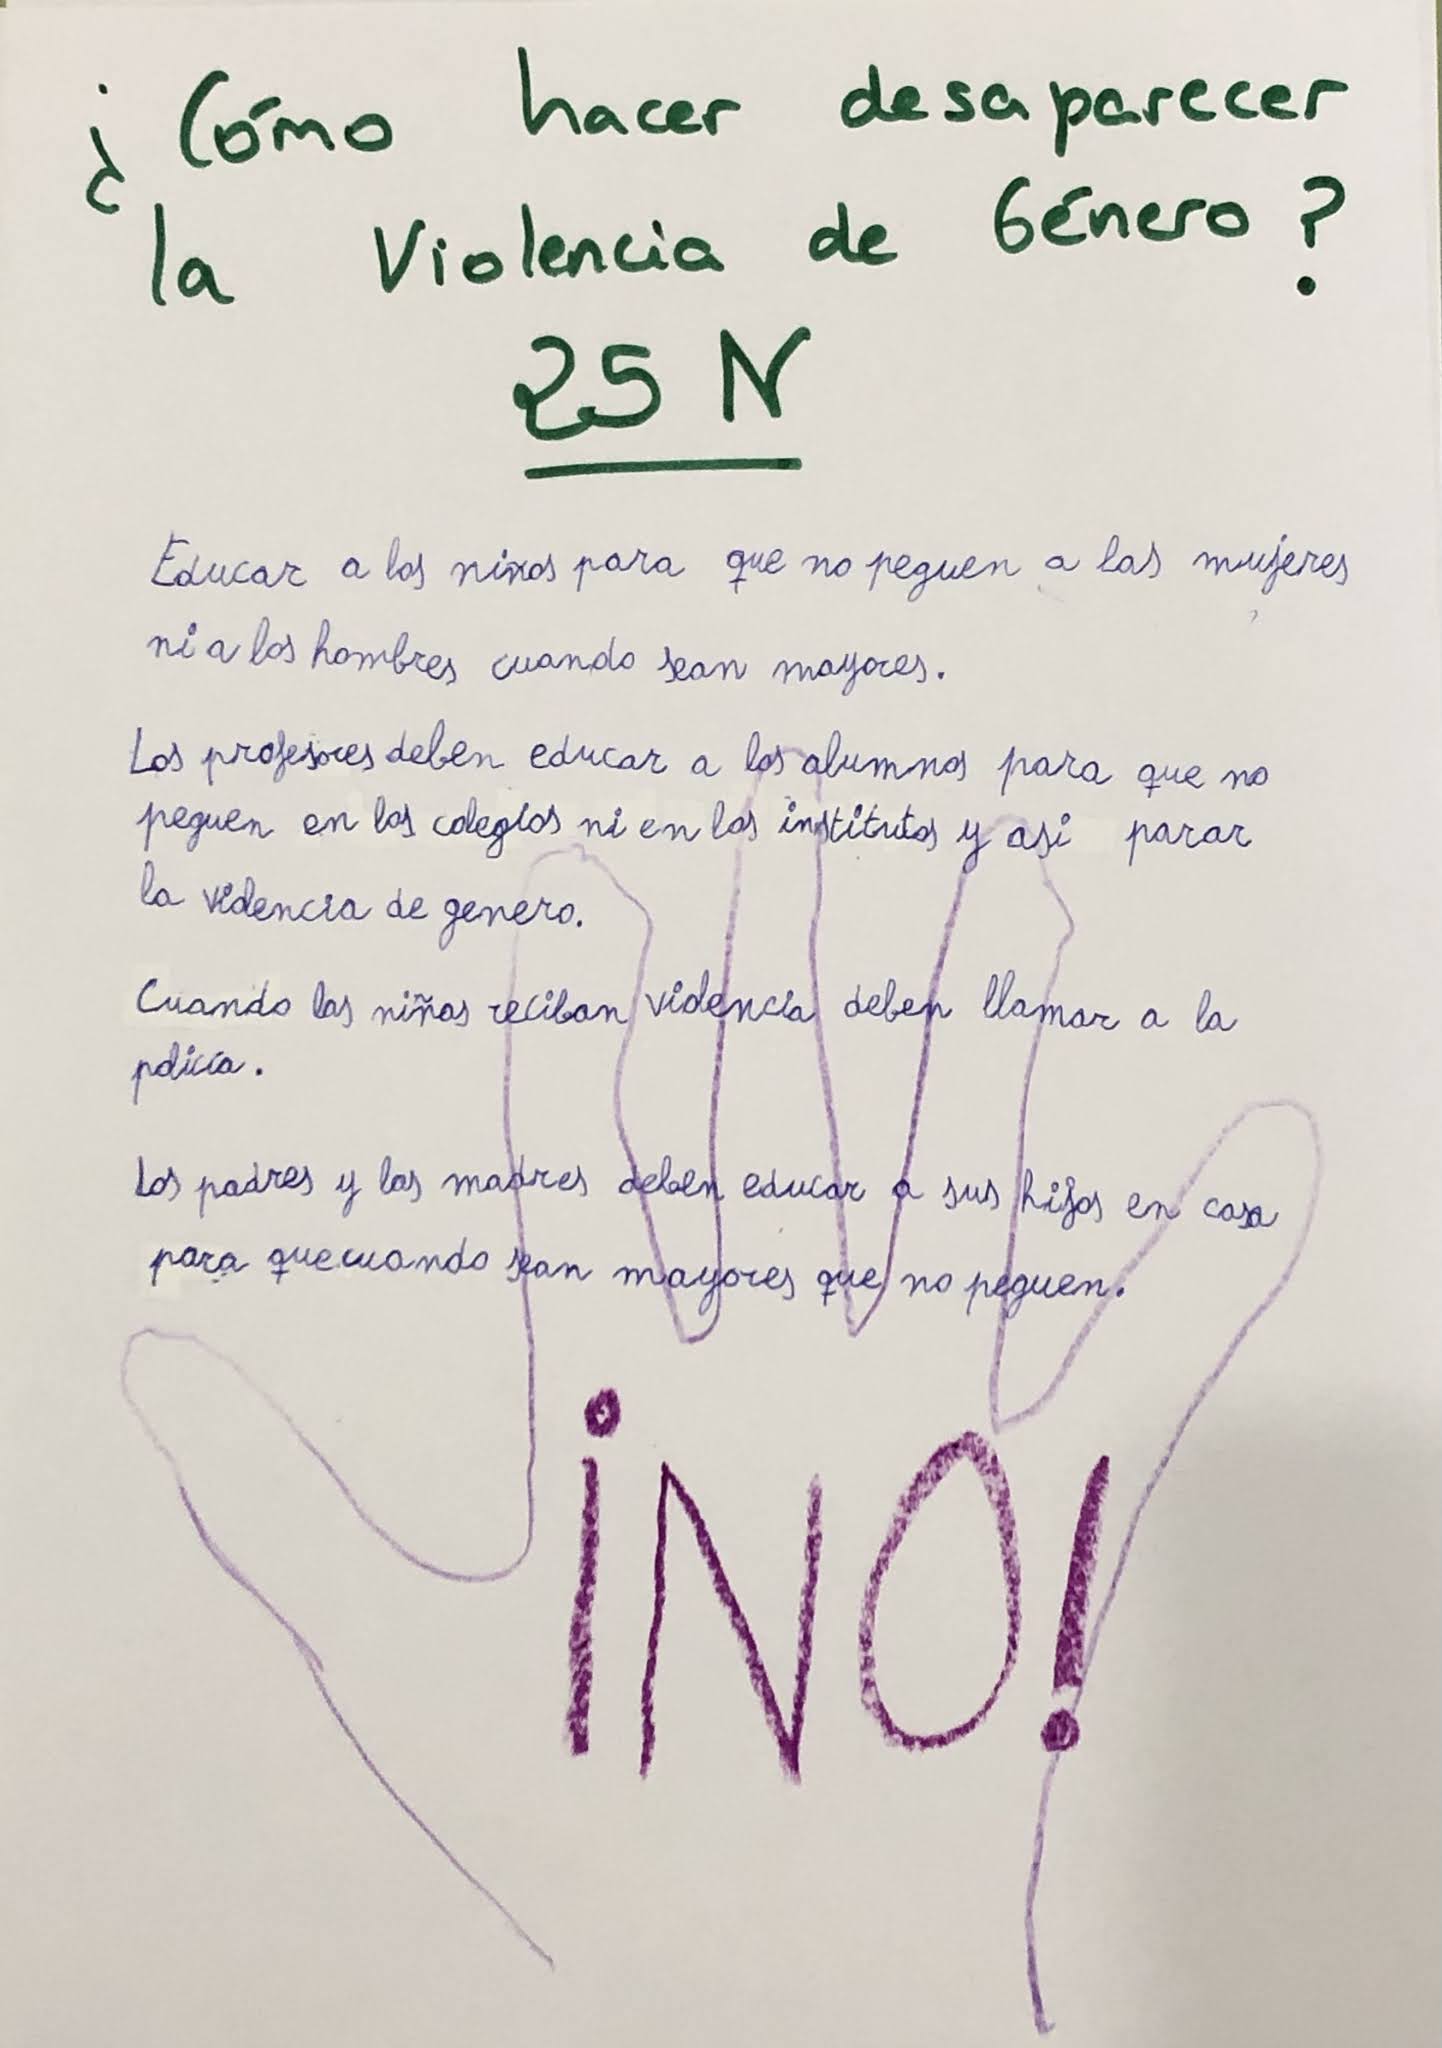 ¿Cómo hacer desaparecer
la Violencia de Género?
25 N
Educar a los niños para que no peguen a las mujeres
ni a los hombres cuando sean mayores.
Los profesores deben educar a los alumnos para que no
peguen en los colegios ni en los institutos y asi parar
la violencia de genero.
Cuando las niñas reciban violencia deben llamar a la
policía.
Los padres y las madres deben educar a sus hijos en casa
para que cuando sean mayores que no peguen.
¡NO!